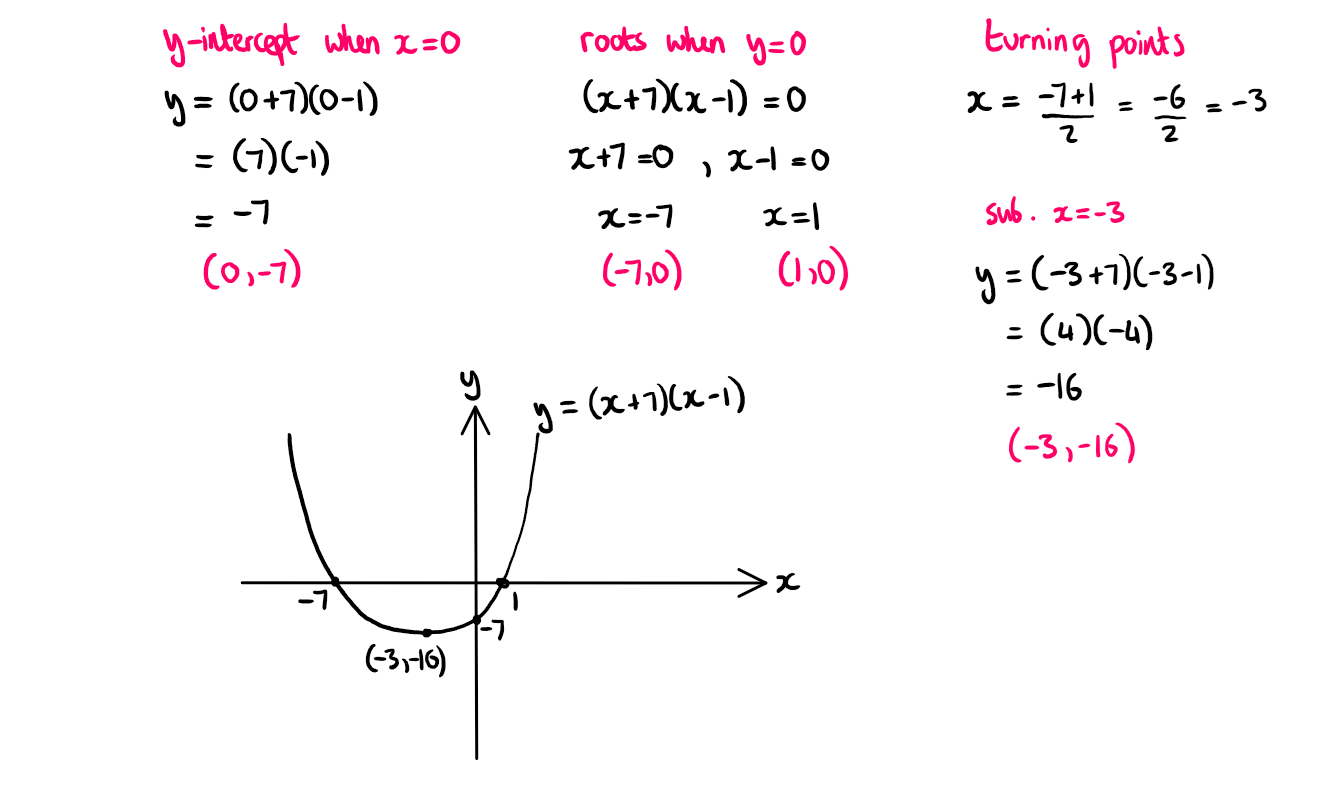 y-intercept when x=0
y = (0+7)(0-1)
= (7)(-1)
= -7
(0,-7)
roots when y=0
(x+7)(x-1) = 0
x+7=0 , x-1=0
x=-7 x=1
(-7,0) (1,0)
turning points
x = -7+1/2 = -6/2 = -3
sub. x=-3
y = (-3+7)(-3-1)
= (4)(-4)
= -16
(-3,-16)
y
y = (x+7)(x-1)
x
-7
1
-7
(-3,-16)